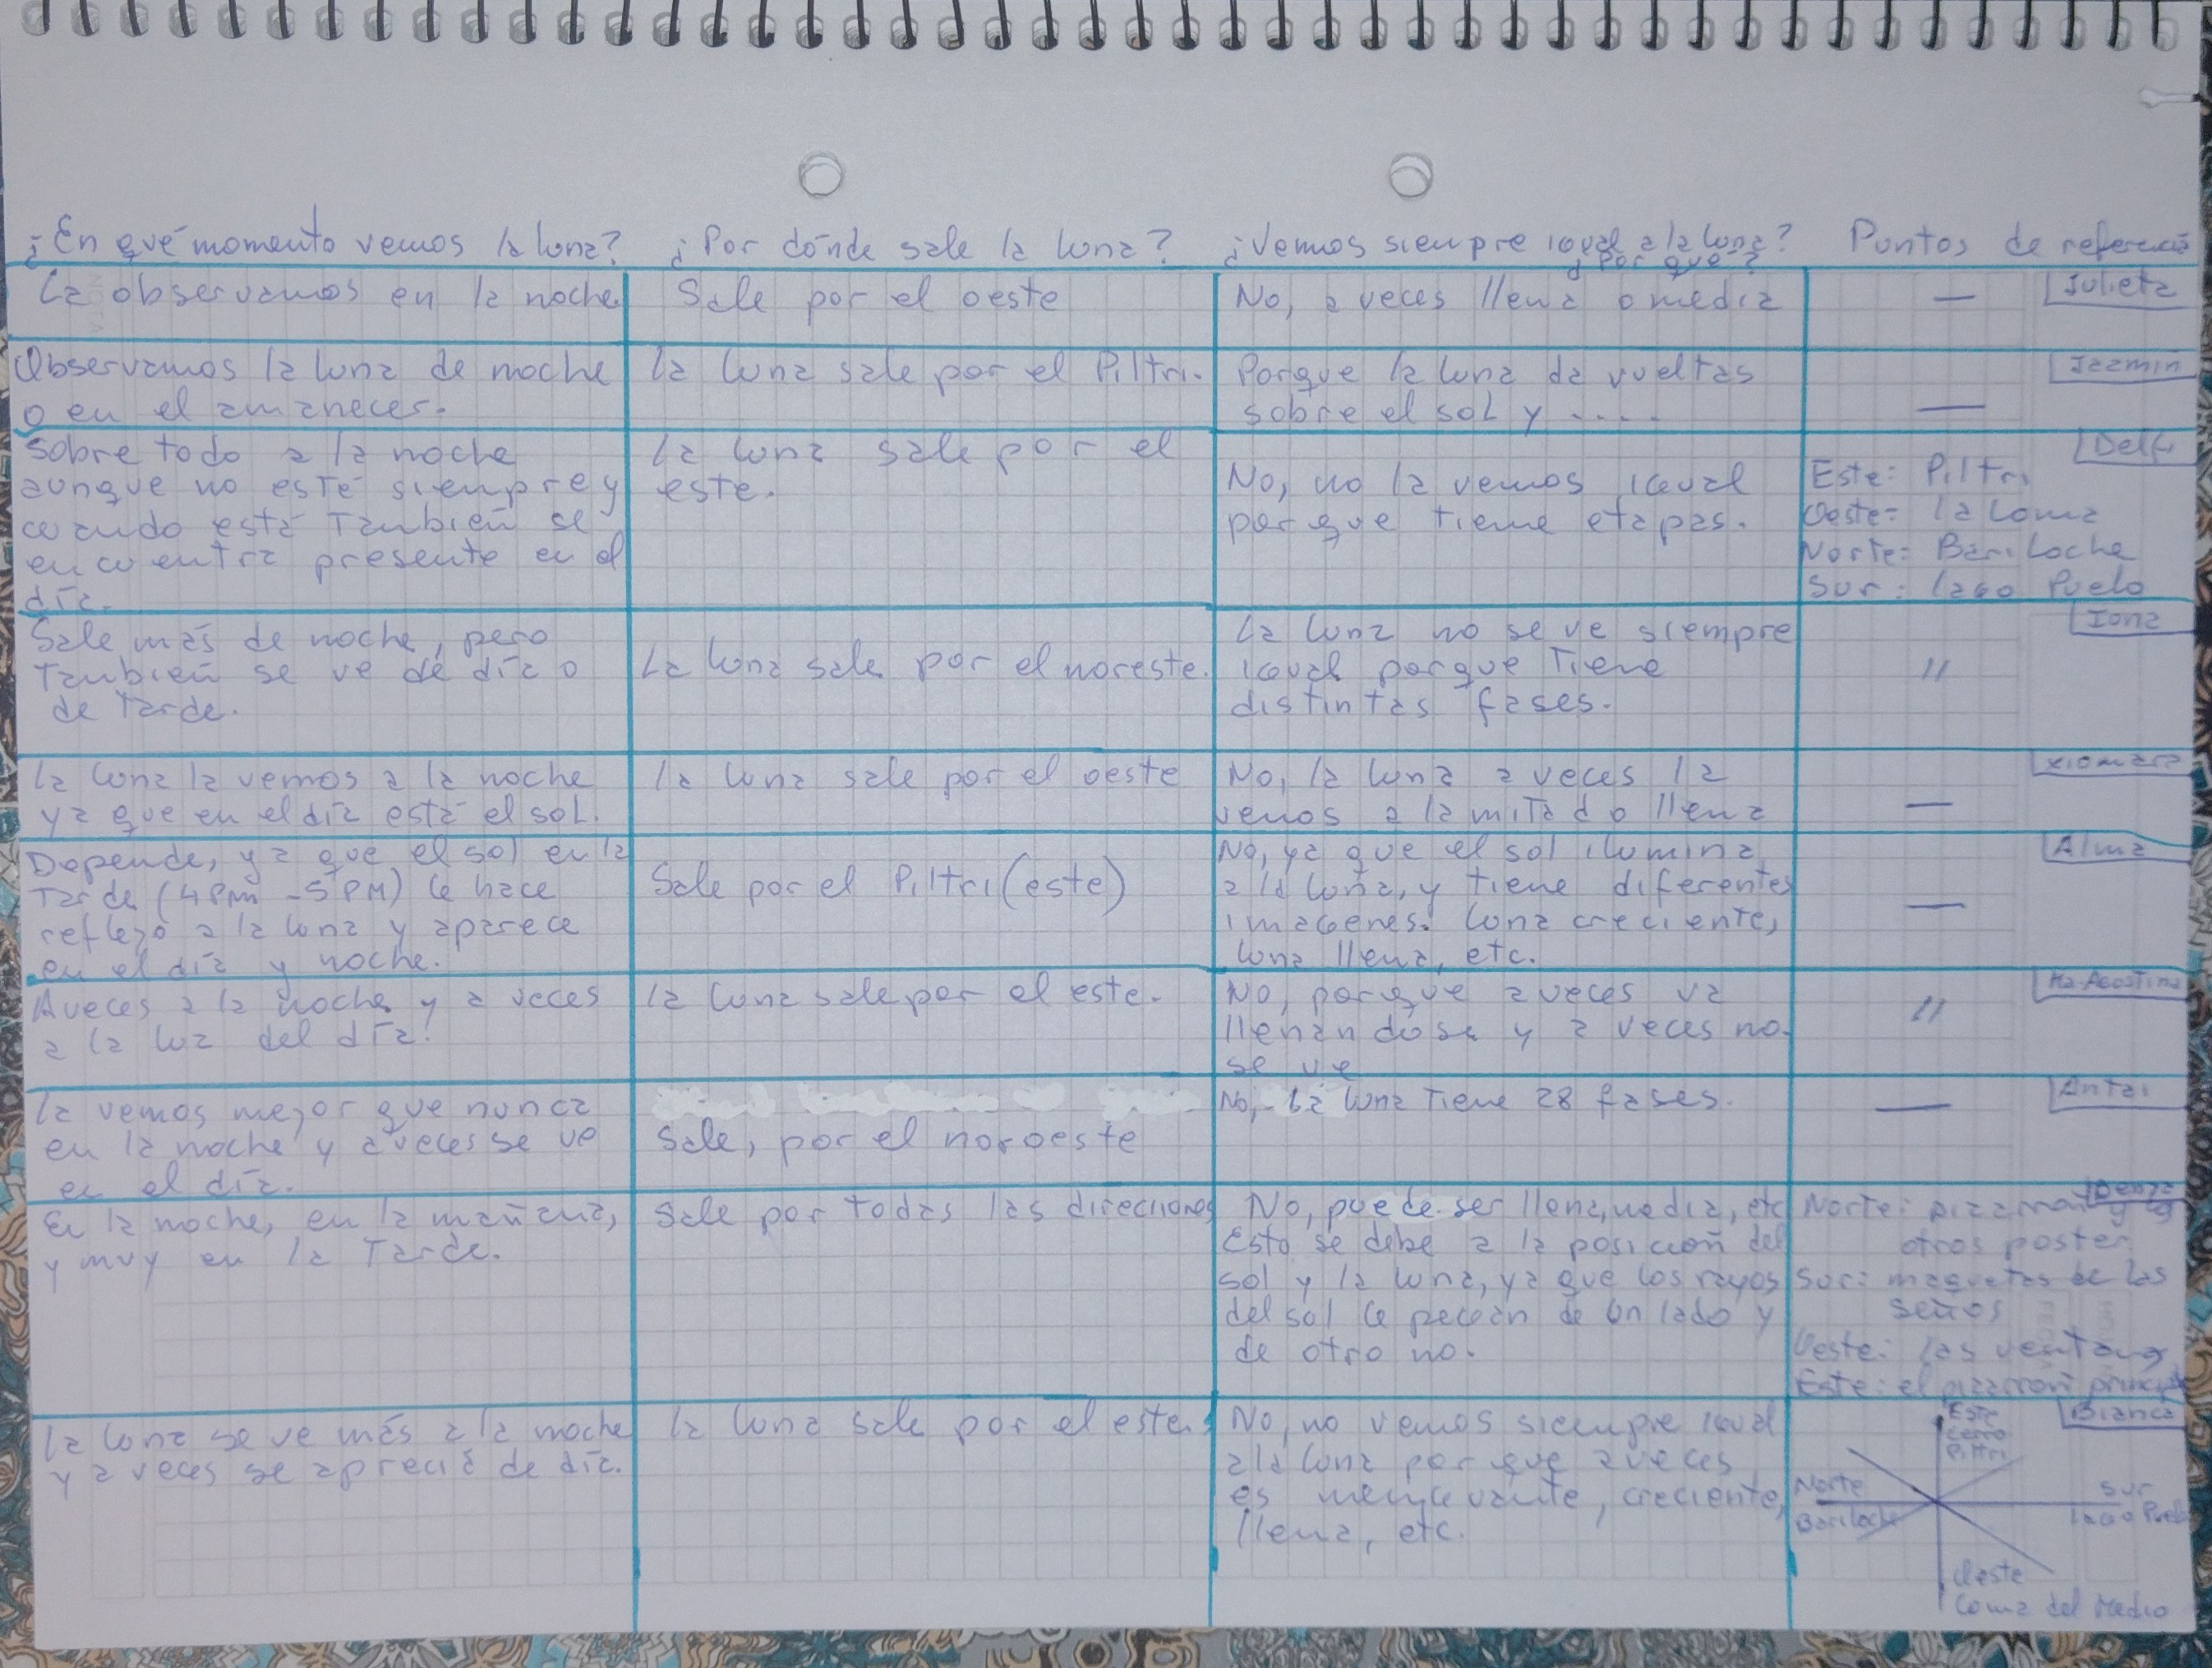 ¿En qué momento vemos la luna?
¿Por dónde sale la luna?
¿Vemos siempre igual a la luna?
¿Por qué?
Puntos de referencia
La observamos en la noche
Sale por el oeste
No, a veces llena o media
—
Julieta
Observamos la luna de noche
o en el amanecer.
la luna sale por el Piltri.
Porque la luna da vueltas
sobre el sol y .....
—
Jazmín
Sobre todo a la noche
aunque no esté siempre y
cuando está también se
encuentra presente en el
día.
la luna sale por el
este.
No, no la vemos igual
porque tiene etapas.
Delfi
Este: Piltri
Oeste: la loma
Norte: Bariloche
Sur: lago Puelo
Sale más de noche, pero
también se ve de día o
de tarde.
La luna sale por el noreste.
La luna no se ve siempre
igual porque tiene
distintas fases.
"
Iona
la luna la vemos a la noche
ya que en el día está el sol.
la luna sale por el oeste
No, la luna a veces la
vemos a la mitad o llena
—
Xiomara
Depende, ya que el sol en la
tarde (4PM - 5PM) le hace
reflejo a la luna y aparece
en el día y noche.
Sale por el Piltri (este)
No, ya que el sol ilumina
a la luna, y tiene diferentes
imágenes. luna creciente,
luna llena, etc.
—
Alma
A veces a la noche y a veces
a la luz del día!
la luna sale por el este.
No, porque a veces va
llenándose y a veces no
se ve
"
Ma. Agostina
la vemos mejor que nunca
en la noche y a veces se ve
en el día.
Sale, por el noroeste
No, la luna tiene 28 fases.
—
Antai
En la noche, en la mañana,
y muy en la tarde.
Sale por todas las direcciones
No, puede ser llena, media, etc
Esto se debe a la posición del
sol y la luna, ya que los rayos
del sol le pegan de un lado y
de otro no.
Norte: pizarrón y los
otros poster
Sur: maquetas de las
seños
Oeste: las ventanas
Este: el pizarrón principal
la luna se ve más a la noche
y a veces se aprecia de día.
la luna sale por el este.
No, no vemos siempre igual
a la luna porque a veces
es menguante, creciente,
llena, etc.
Bianca
Este
cerro
Piltri
Norte
Bariloche
Sur
Lago Puelo
Oeste
Loma del Medio